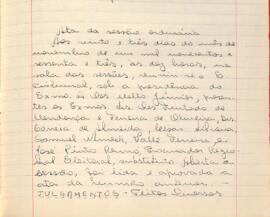 Ata da sessão ordinária
Aos vinte e três dias do mês de
novembro de um mil novecentos e
sessenta e três, às dez horas, na
sala das sessões, reuniu-se o E.
Tribunal, sob a presidência do
Exmo. sr. Des. júnior, presen-
tes os Exmos. srs. Des. Furtado de
Mendonça e Ferreira de Oliveira, Drs.
Correia de Almeida,
Samuel Valle Ferreira e
José Pinto Procurador Regio-
nal Eleitoral, substituto. Aberta a
sessão, foi lida e aprovada a
ata da reunião anterior. -
JULGAMENTOS: - Feitos Diversos